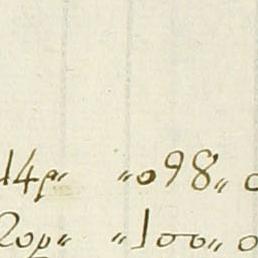 14p„ „098„ 0
20p„ „100„ 0